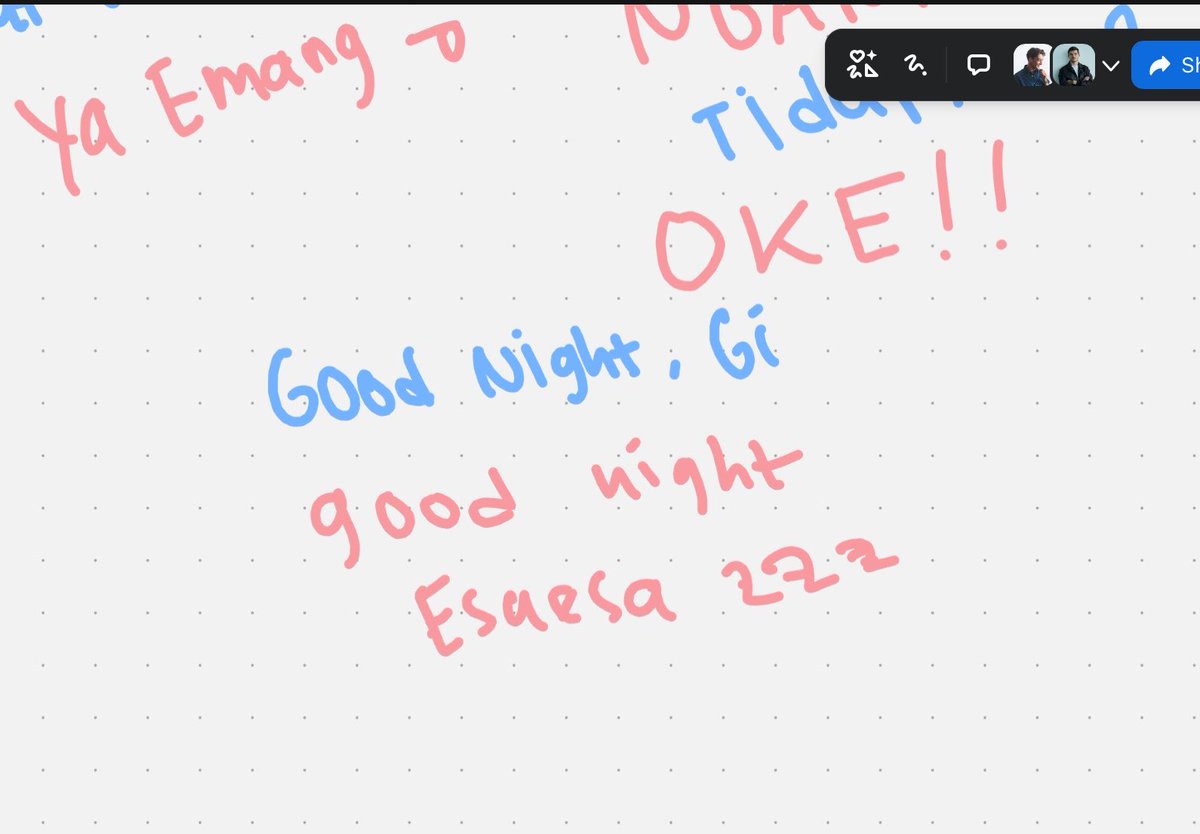 Ya Emang :P
Sh
OKE!!
Good Night, Gi
good night
Esaesa zzz